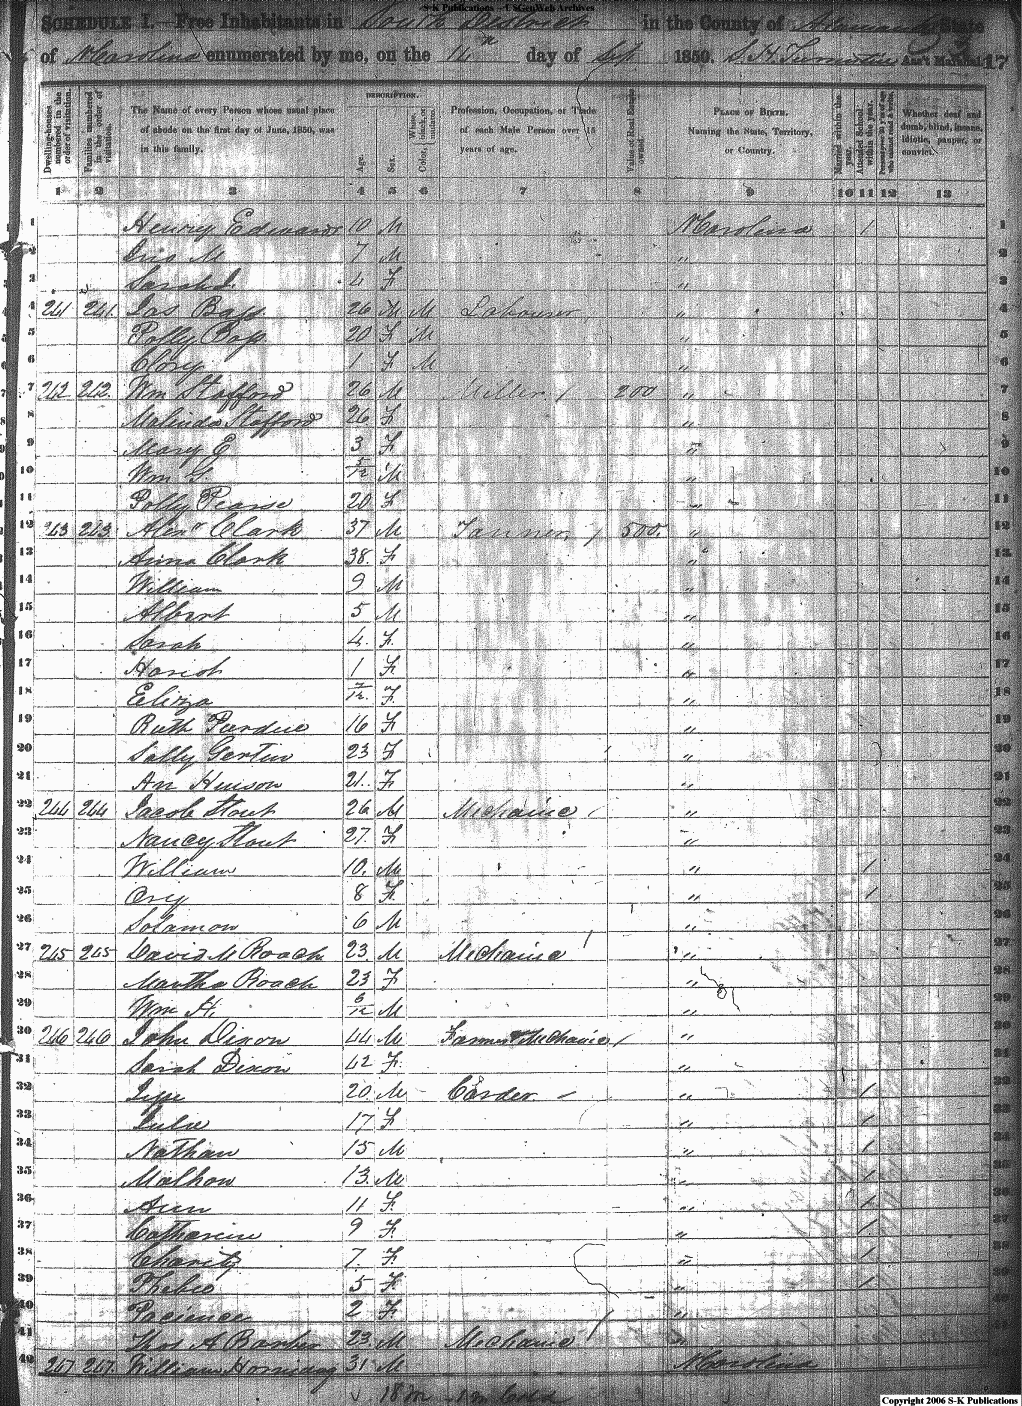 S-K Publications - USGenWeb Archives
SCHEDULE I.—Free Inhabitants in South District in the County of State
of N Carolina enumerated by me, on the day of Sept 1850. Ass't Marshal. 17
Dwelling-houses numbered in the order of visitation.
Families numbered in the order of visitation.
The Name of every Person whose usual place of abode on the first day of June, 1850, was in this family.
DESCRIPTION.
Age.
Sex.
Color, White, black, or mulatto.
Profession, Occupation, or Trade of each Male Person over 15 years of age.
Value of Real Estate owned
PLACE OF BIRTH. Naming the State, Territory, or Country.
Married within the year.
Attended School within the year.
Whether deaf and dumb, blind, insane, idiotic, pauper, or convict.
1 2 3 4 5 6 7 8 9 10 11 12 13
1 Henry Edwards 10 M N Carolina 1 1
2 M 7 M " 2
3 Sarah J. 4 F " 3
4 241 241 Jas Bass 26 M M Labourer " 4
5 Polly Bass 20 F M " 5
6 1 F M " 6
7 242 242 Wm Stafford 26 M Miller / 200 " 7
8 Malinda Stafford 26 F " 8
9 Mary E 3 F " 9
10 Wm G. 5/12 M " 10
11 Polly Pearse 20 F " 11
12 243 243 Alexr Clark 37 M Tanner / 500. " 12
13 Anna Clark 38. F " 13
14 William 9 M " 14
15 Albert 5 M " 15
16 Sarah 4. F " 16
17 1 F " 17
18 Eliza /12. F " 18
19 Ruth Purdue 16 F " 19
20 Sally 23 F " 20
21 An 21. F " 21
22 244 244 Jacob Stout 26 M Mechanic / " 22
23 Nancy Stout 27. F " 23
24 William 10. M " 1 24
25 8 F " 1 25
26 Solamon 6 M " 26
27 245 245 David M Roach 23. M Mechanic / " 27
28 Martha Roach 23 F " 28
29 Wm H. 6/12 M " 29
30 246 246 John Dixon 44 M Farmer & Mechanic / " 30
31 Sarah Dixon 42 F " 31
32 20. M Carder. " 1 32
33 17 F " 1 33
34 Nathan 15 M " 1 34
35 13. M " 1 35
36 Ann 11 F " 1 36
37 Catharine 9 F " 1 37
38 Charity 7. F " 1 38
39 Phebe 5 F " 1 39
40 Pacience 2 F " 40
41 Thos A Barber 23. M Mechanic / " 41
42 247 247. William Hornaday 31 M N Carolina 42
18 m
Copyright 2006 S-K Publications